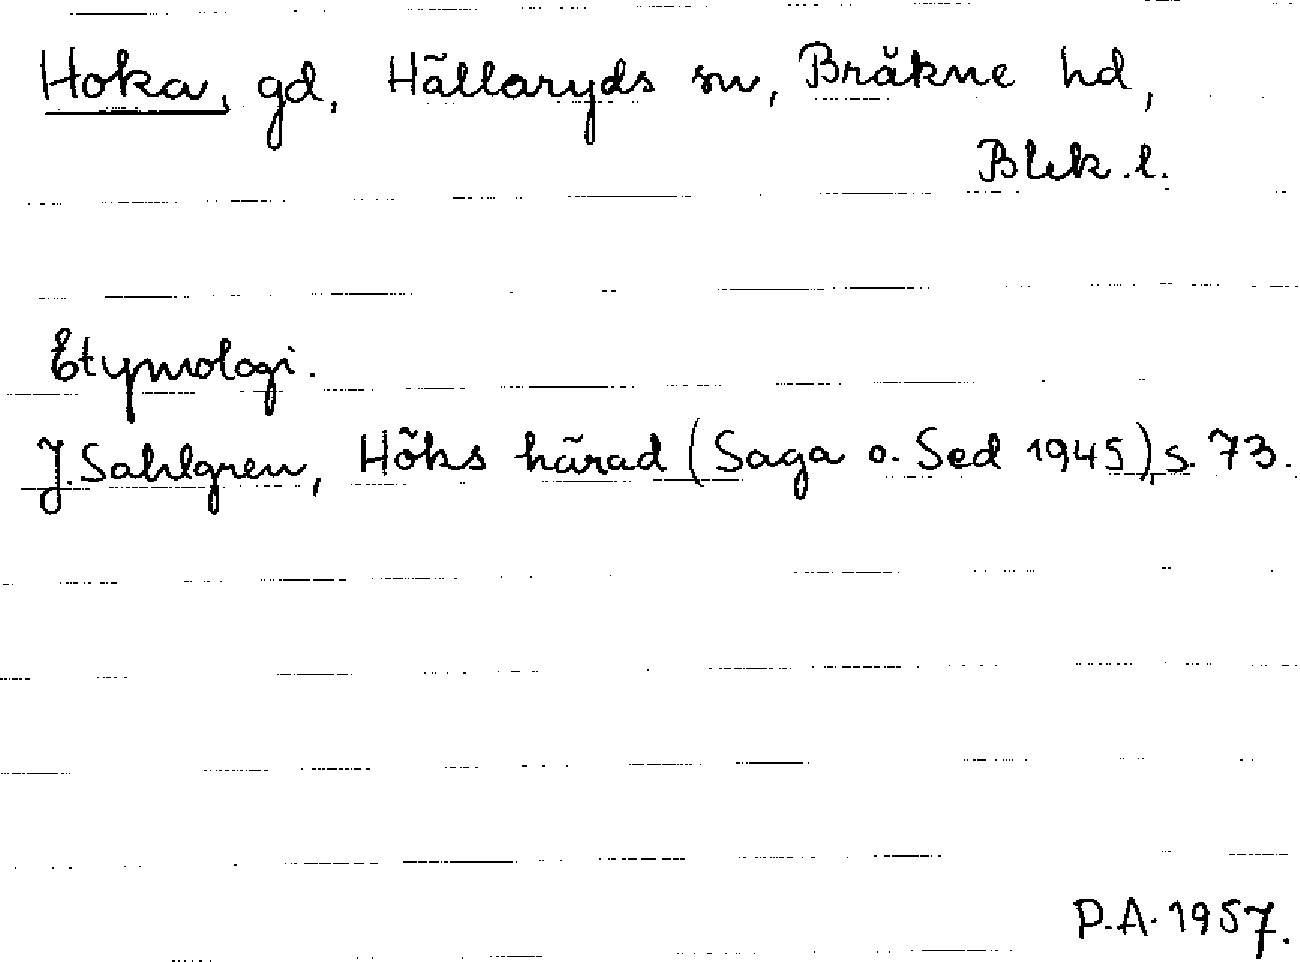 Hoka, gd, Hällaryds sn, Bräkne hd,
Blek. l.
Etymologi.
J. Sahlgren, Höks härad (Saga o. Sed 1945), s. 73.
P.A. 1957.